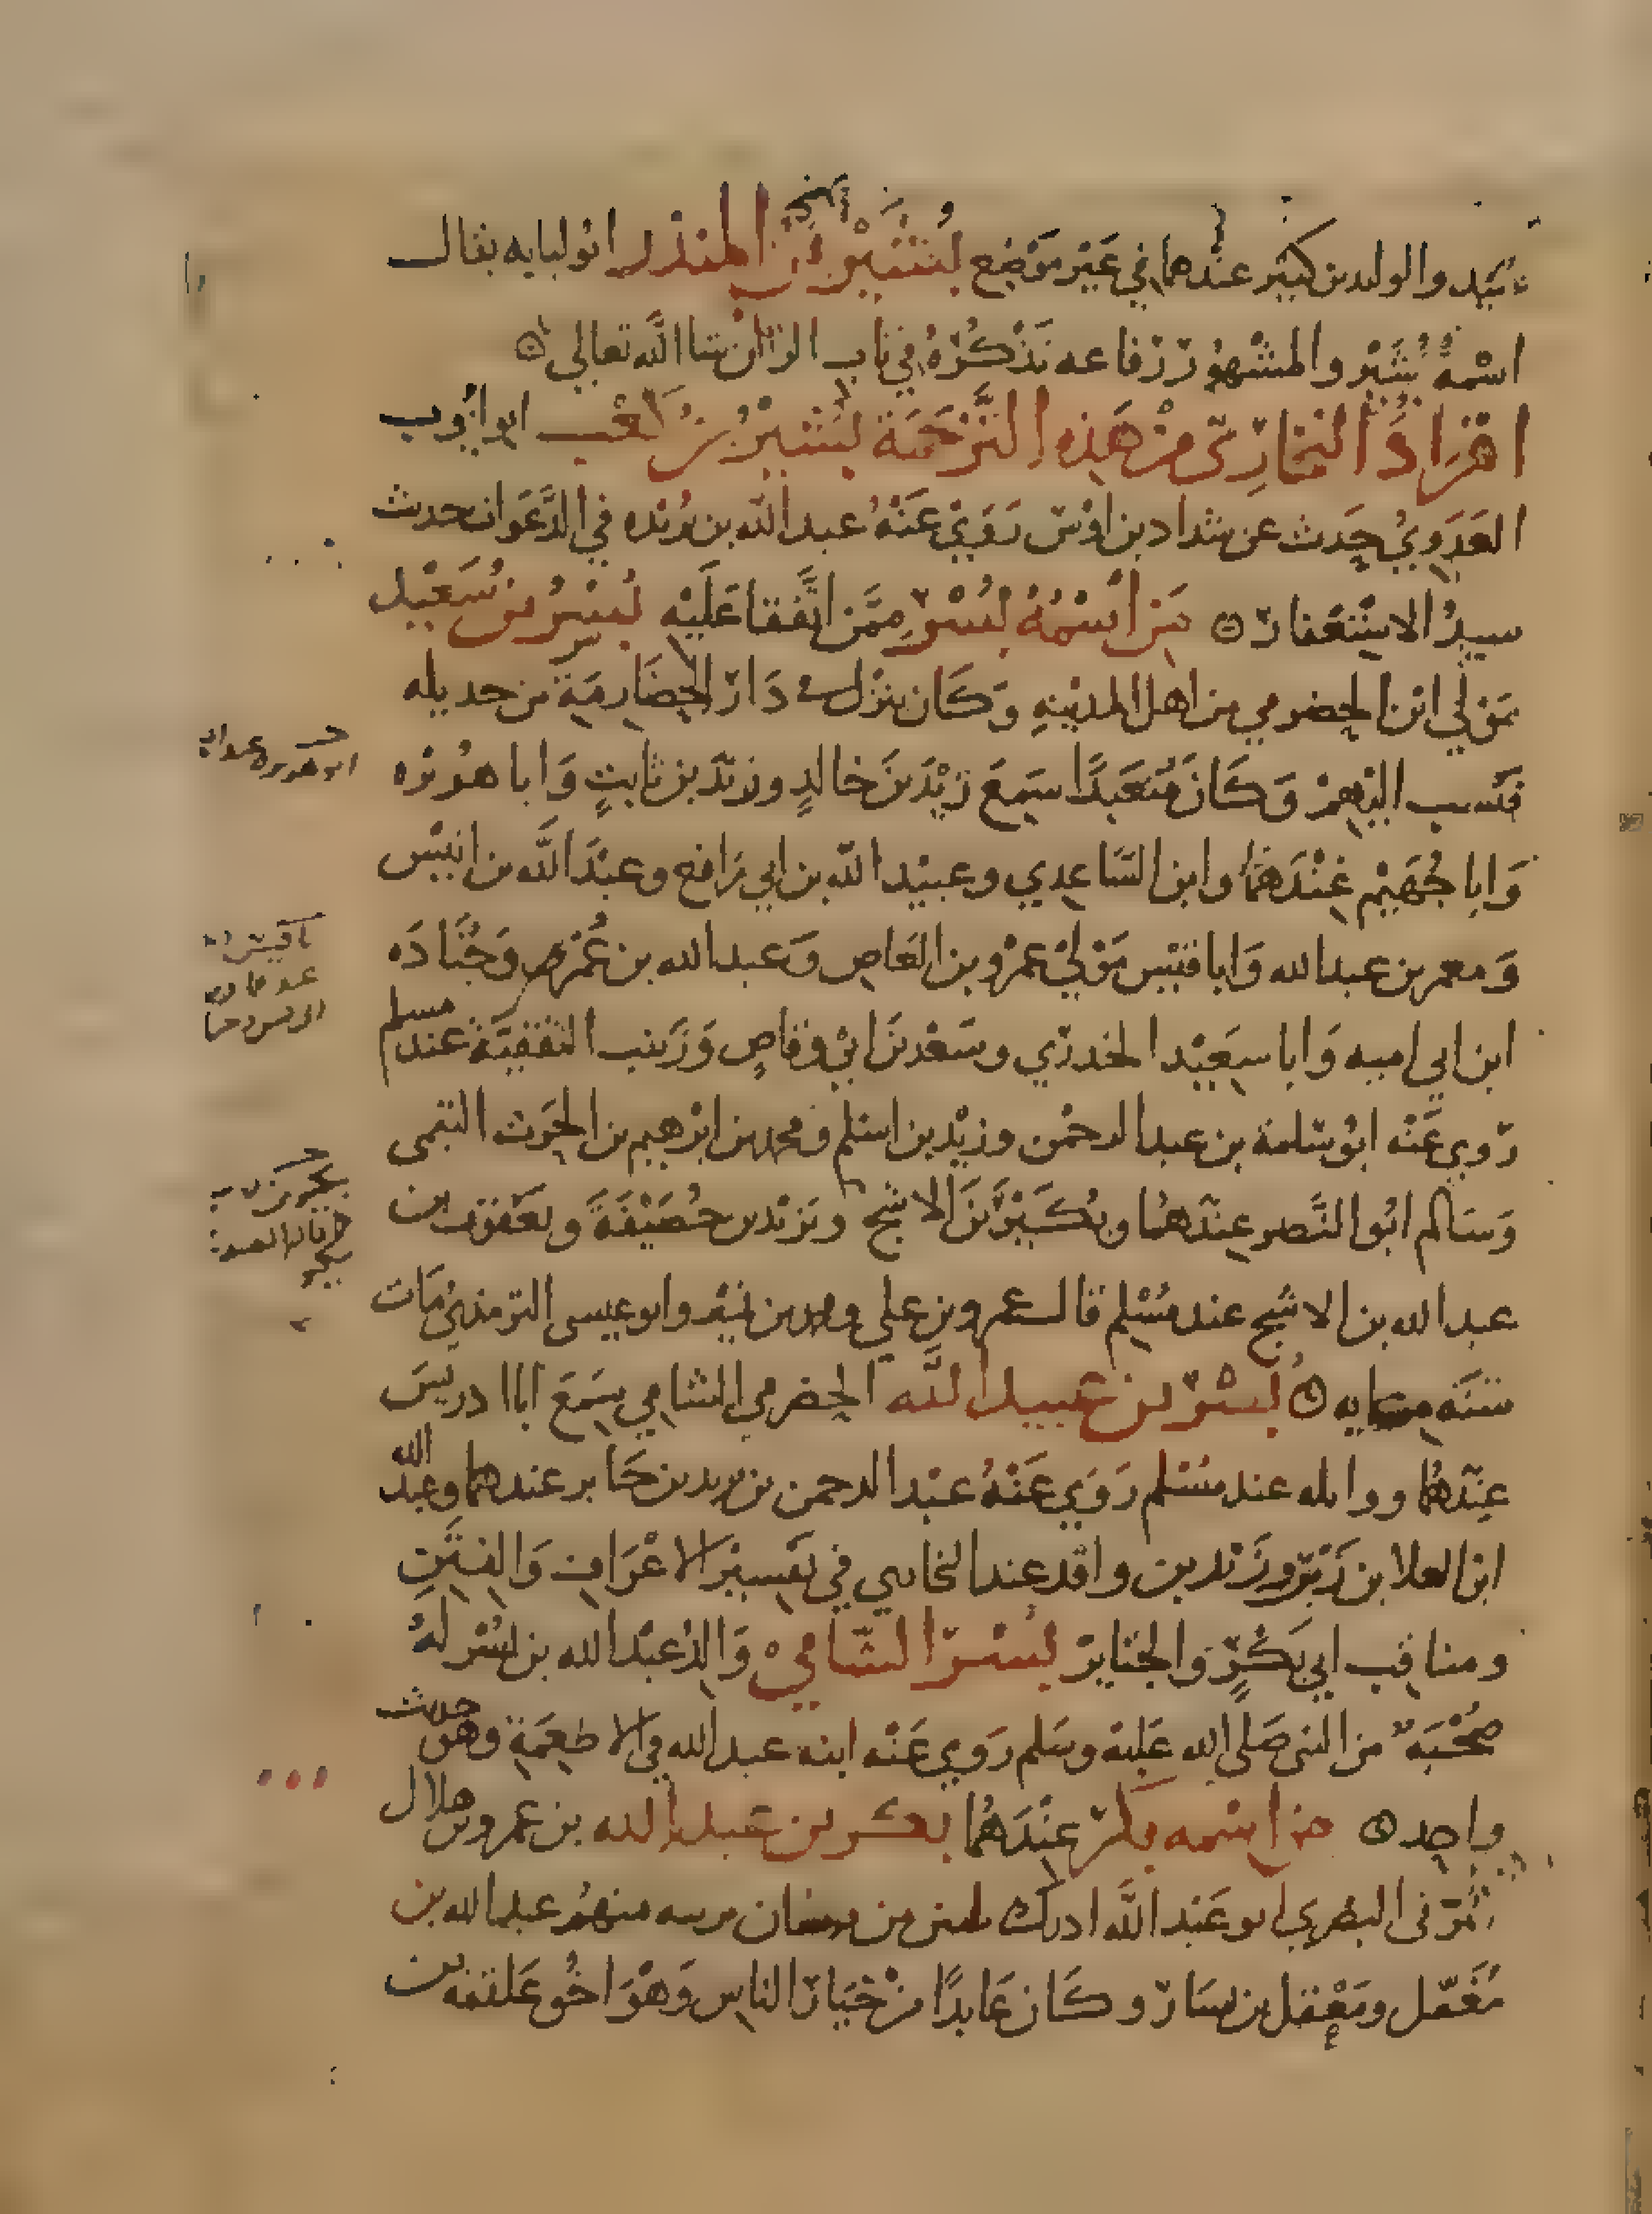 والوليد بن كثير عندهما في غير موضع بُشَيْر بن المنذر ابو لبابه يقال
اسْمهُ بُشَيْر والمشهُور رفاعه نَذْكُرُهُ في باب الرا ان شا الله تعالي
افْرَادُ البُخَارِيّ مِنْ هَذِهِ التَّرْجَمَة بُشَيْرُ بن كَعْب ابو ايُّوب
العَدَوِيُّ حَدث عن شداد بن اوْس رَوَي عَنْهُ عبد الله بن بُرَيْده في الدَّعَوات حديث
سيدُ الاسْتغفار مَن اسْمُهُ بُسْر مِمَّن اتَّفقا عَلَيْه بُسْرُ بن سَعيْد
مَوْلي ابْن الحضرمي من اهل المديْنهِ وَكَان ينزل دَار الحَضَارِمَة من حديله
فنسب اليْهمْ وَكَانَ مُتَعَبِّدًا سَمِعَ زَيْدَ بنَ خالدٍ وزيْد بن ثابتٍ وَابا هُرَيْره
وَابا جُهَيْم عِنْدَهُمَا وابن السَّاعِدي وعبيْد الله بن ابي رَافع وعبْدَ الله بن انيْس
وَمعمر بن عبد الله وَابا قيْس مَوْليْ عمرْو بن العَاص وَعبد الله بن عُمَر وَجُنَادَه
ابن ابي اميه وَابا سَعِيْد الخدري وسَعْد بنَ ابيْ وقاصٍ وَزَينب الثقفيَّة عند مسلم
رَوي عَنْه ابُو سَلمة بن عبد الرحمْن وزيْد بن اسْلم ومحمد بن ابرْهيم بن الحَرث التيمي
وَسَالم ابُو النَّضر عِنْدَهُما وبُكَيْرُ بنَ الاشج ويَزيْد بن خُصَيْفَةَ ويَعْقوب بن
عبد الله بن الاشج عند مُسْلم قال عمرو بن علي و بن نميْر وابو عيسى الترمذيُ مَات
سَنَة مايه بُسْر بن عبيد الله الحضرمي الشامي سَمعَ ابا ادريسَ
عِنْدَهُما وواثله عند مسْلم رَوَي عَنْهُ عبْد الرحمن بن يزيد بن جَابر عندهما وعبد الله
ابن العلا بن زَبْر وزَيْد بن واقد عند البخاري في تفسيْر الاعْرَاف وَالفِتَنِ
ومناقب ابي بَكْرٍ وَالجنايز بُسْر السُّلَميْ وَالِدُ عبْد الله بن بُسْر لهُ
صُحْبَة من النبي صَلى الله عَليْه وسَلم رَوي عَنْه ابنه عبد الله في الاطعِمَةِ وهُو حديث
واحد من اسْمه بكرْ عنْدَهُما بكر بن عبد الله بن عمرو بن هلال
المُزَني البصْري ابو عَبْد الله ادرك منهُم عبد الله بن
مُغَفّل ومَعْقل بن يَسَار وكَان عَابدًا منْ خيَار الناس وَهْوَ اخُو عَلقمَه بن